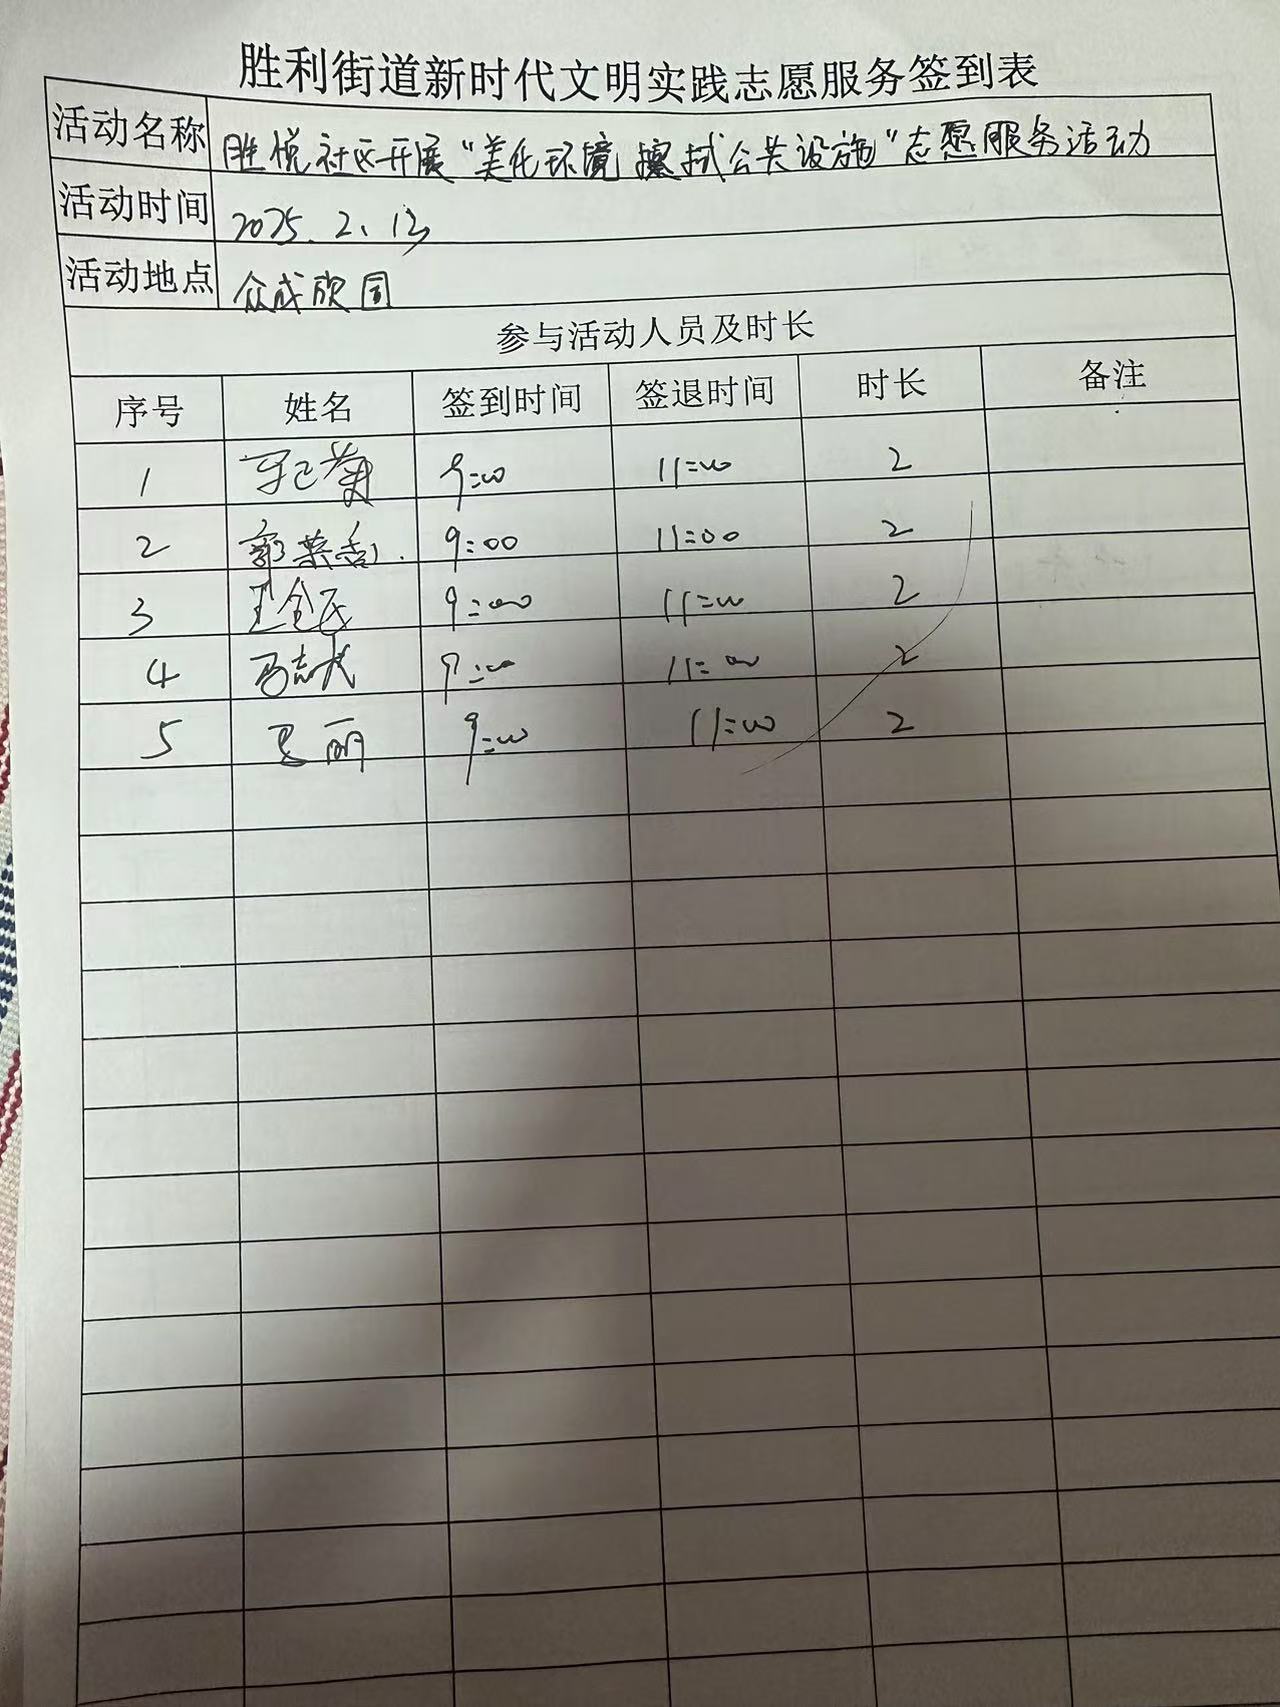 胜利街道新时代文明实践志愿服务签到表
活动名称 胜悦社区开展“美化环境 擦拭公共设施”志愿服务活动
活动时间 2025.2.13
活动地点 众成欣园
参与活动人员及时长
序号 姓名 签到时间 签退时间 时长 备注
1 9:00 11:00 2
2 郭荣香 9:00 11:00 2
3 王金民 9:00 11:00 2
4 马志成 9:00 11:00 2
5 丽 9:00 11:00 2